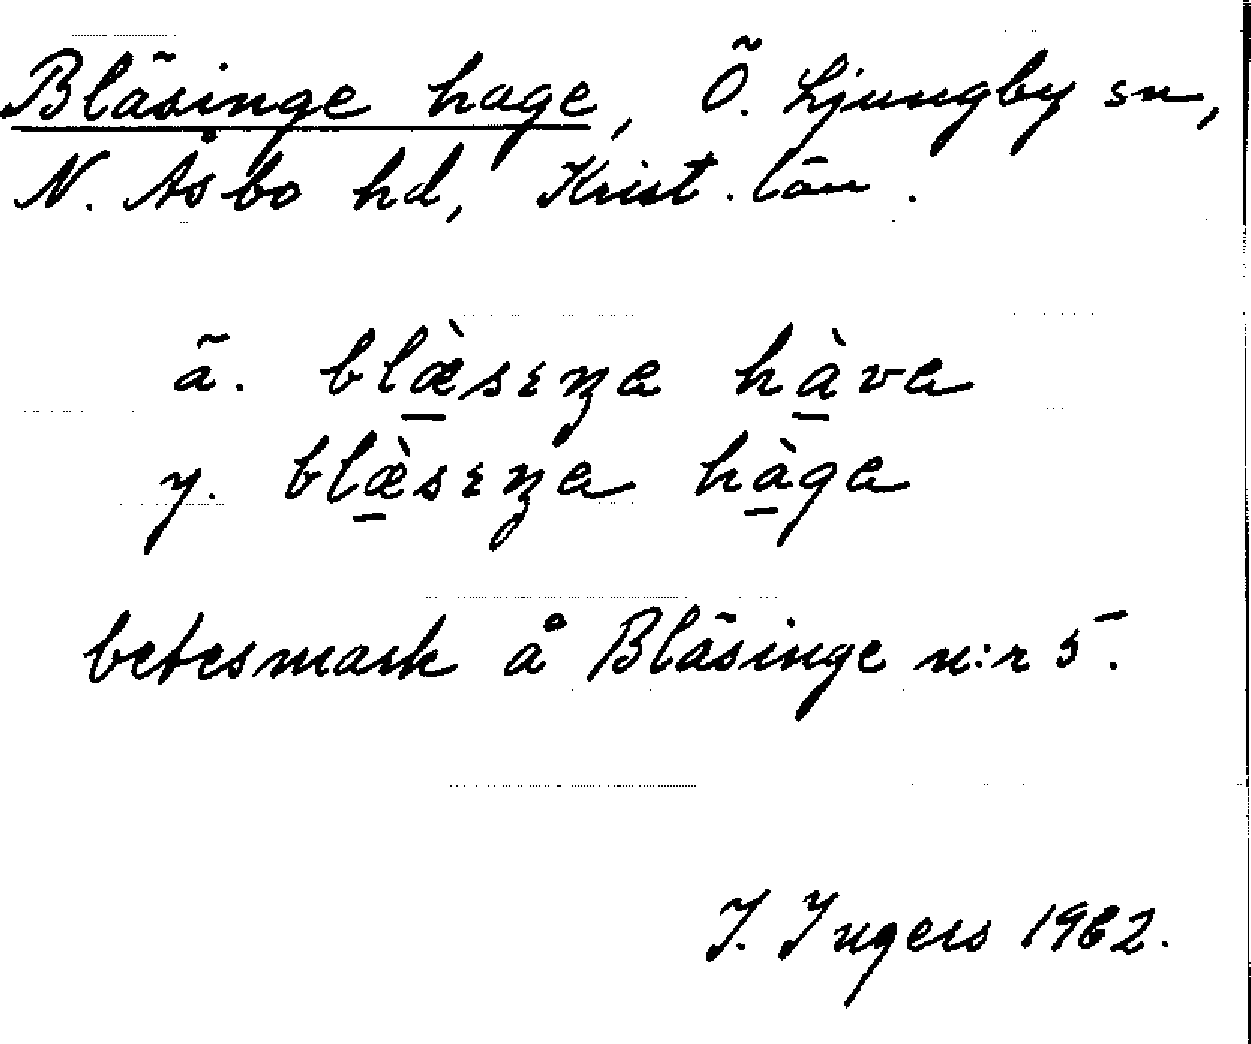 Bläsinge hage, Ö. Ljungby sn,
N. Åsbo hd, Krist. län.
ä. blæ̀sɛŋa hàva
y. blæ̀sɛŋa hàga
betesmark å Bläsinge n:r 5.
I. Ingers 1962.